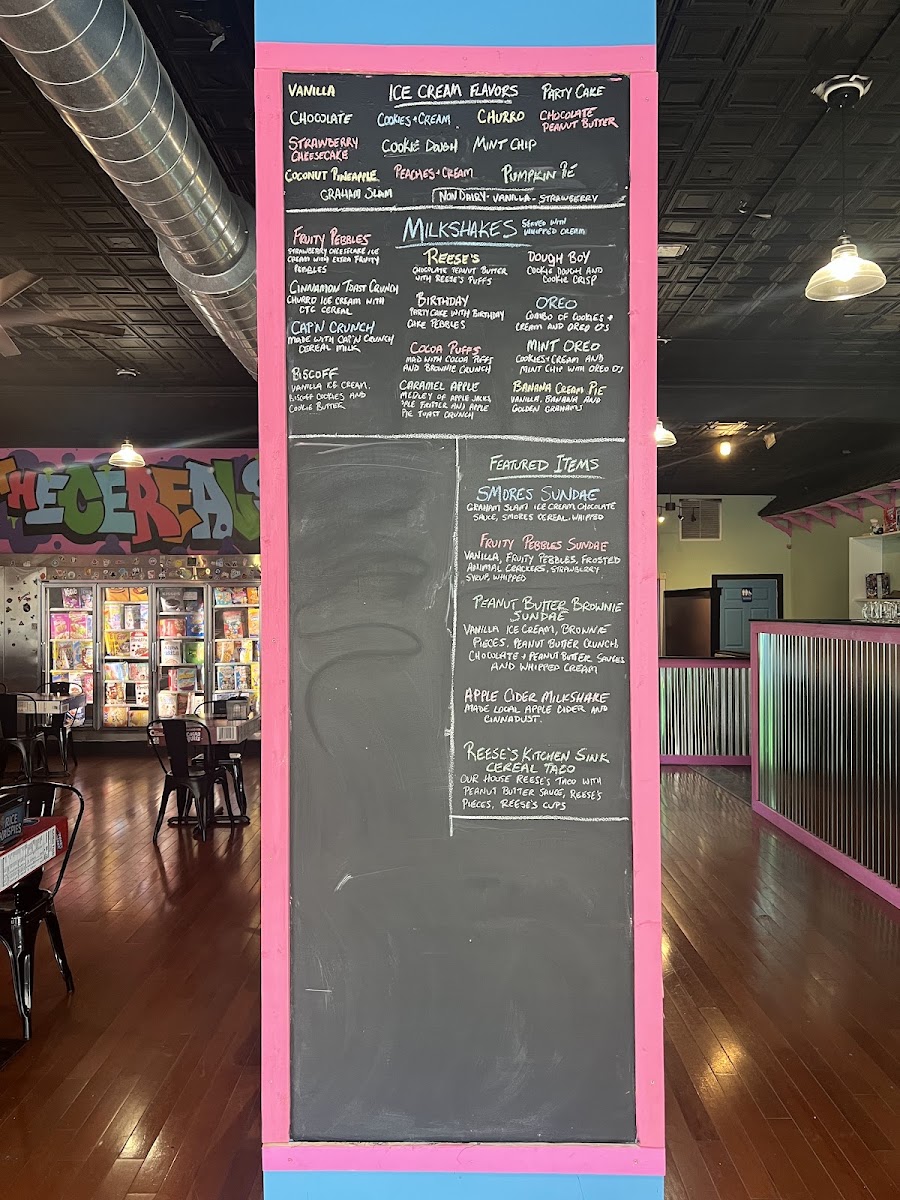 VANILLA ICE CREAM FLAVORS PARTY CAKE
CHOCOLATE COOKIES + CREAM CHURRO CHOCOLATE
PEANUT BUTTER
STRAWBERRY
CHEESECAKE COOKIE DOUGH MINT CHIP
COCONUT PINEAPPLE PEACHES + CREAM PUMPKIN PIE
GRAHAM SLAM NON DAIRY - VANILLA - STRAWBERRY
MILKSHAKES SERVED WITH
WHIPPED CREAM
FRUITY PEBBLES
STRAWBERRY CHEESECAKE ICE
CREAM WITH EXTRA FRUITY
PEBBLES
CINNAMON TOAST CRUNCH
CHURRO ICE CREAM WITH
CTC CEREAL
CAP'N CRUNCH
MADE WITH CAP'N CRUNCH
CEREAL MILK
BISCOFF
VANILLA ICE CREAM,
BISCOFF COOKIES AND
COOKIE BUTTER
REESE'S
CHOCOLATE PEANUT BUTTER
WITH REESE'S PUFFS
BIRTHDAY
PARTY CAKE WITH BIRTHDAY
CAKE PEBBLES
COCOA PUFFS
MAD WITH COCOA PUFFS
AND BROWNIE CRUNCH
CARAMEL APPLE
MEDLEY OF APPLE JACKS
PLE FRITTER AND APPLE
PIE TOAST CRUNCH
DOUGH BOY
COOKIE DOUGH AND
COOKIE CRISP
OREO
COMBO OF COOKIES +
CREAM AND OREO O'S
MINT OREO
COOKIES + CREAM AND
MINT CHIP WITH OREO O'S
BANANA CREAM PIE
VANILLA, BANANA AND
GOLDEN GRAHAMS
FEATURED ITEMS
SMORES SUNDAE
GRAHAM SLAM ICE CREAM CHOCOLATE
SAUCE, SMORES CEREAL, WHIPPED
FRUITY PEBBLES SUNDAE
VANILLA, FRUITY PEBBLES, FROSTED
ANIMAL CRACKERS, STRAWBERRY
SYRUP, WHIPPED
PEANUT BUTTER BROWNIE
SUNDAE
VANILLA ICE CREAM, BROWNIE
PIECES, PEANUT BUTTER CRUNCH,
CHOCOLATE + PEANUT BUTTER SAUCES
AND WHIPPED CREAM
APPLE CIDER MILKSHAKE
MADE LOCAL APPLE CIDER AND
CINNADUST.
REESE'S KITCHEN SINK
CEREAL TACO
OUR HOUSE REESE'S TACO WITH
PEANUT BUTTER SAUCE, REESE'S
PIECES, REESE'S CUPS
THE CEREALS
RICE
KRISPIES